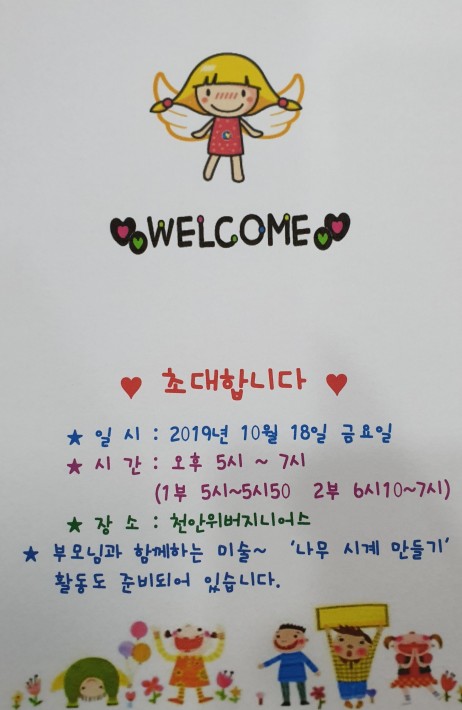 WELCOME
♥ 초대합니다 ♥
★ 일 시 : 2019년 10월 18일 금요일
★ 시 간 : 오후 5시 ~ 7시
(1부 5시~5시50 2부 6시10~7시)
★ 장 소 : 천안위버지니어스
★ 부모님과 함께하는 미술~ '나무 시계 만들기'
활동도 준비되어 있습니다.